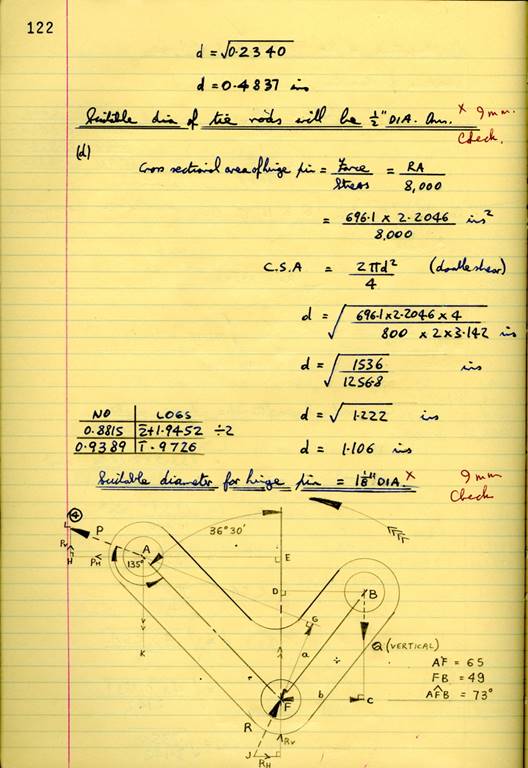 122
d = √0.2340
d = 0.4837 ins
Suitable dia of tie rods will be ½" DIA. Ans. × 9mm.
Check.
(d)
Cross sectional area of hinge pin = Force/Stress = RA/8,000
= 696.1 × 2.2046/8,000 ins²
C.S.A = 2πd²/4 (double shear)
d = √696.1×2.2046×4/800 × 2×3.142 ins
d = √1536/1256.8 ins
NO LOGS
d = √1.222 ins
0.8815 2̄+1.9452 ÷2
0.9389 1̄.9726
d = 1.106 ins
Suitable diameter for hinge pin = 1⅛" DIA. × 9mm
Check
4
36°30'
L P
A
E
Pv
H PH
135°
D
B
G
K
a
Q (VERTICAL)
AF = 65
FB = 49
AF̂B = 73°
r
b
C
F
R
Rv
J
RH